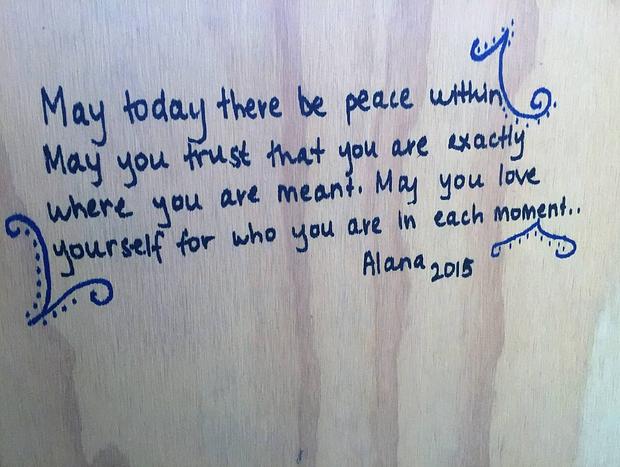 May today there be peace within
May you trust that you are exactly
where you are meant. May you love
yourself for who you are in each moment..
Alana 2015